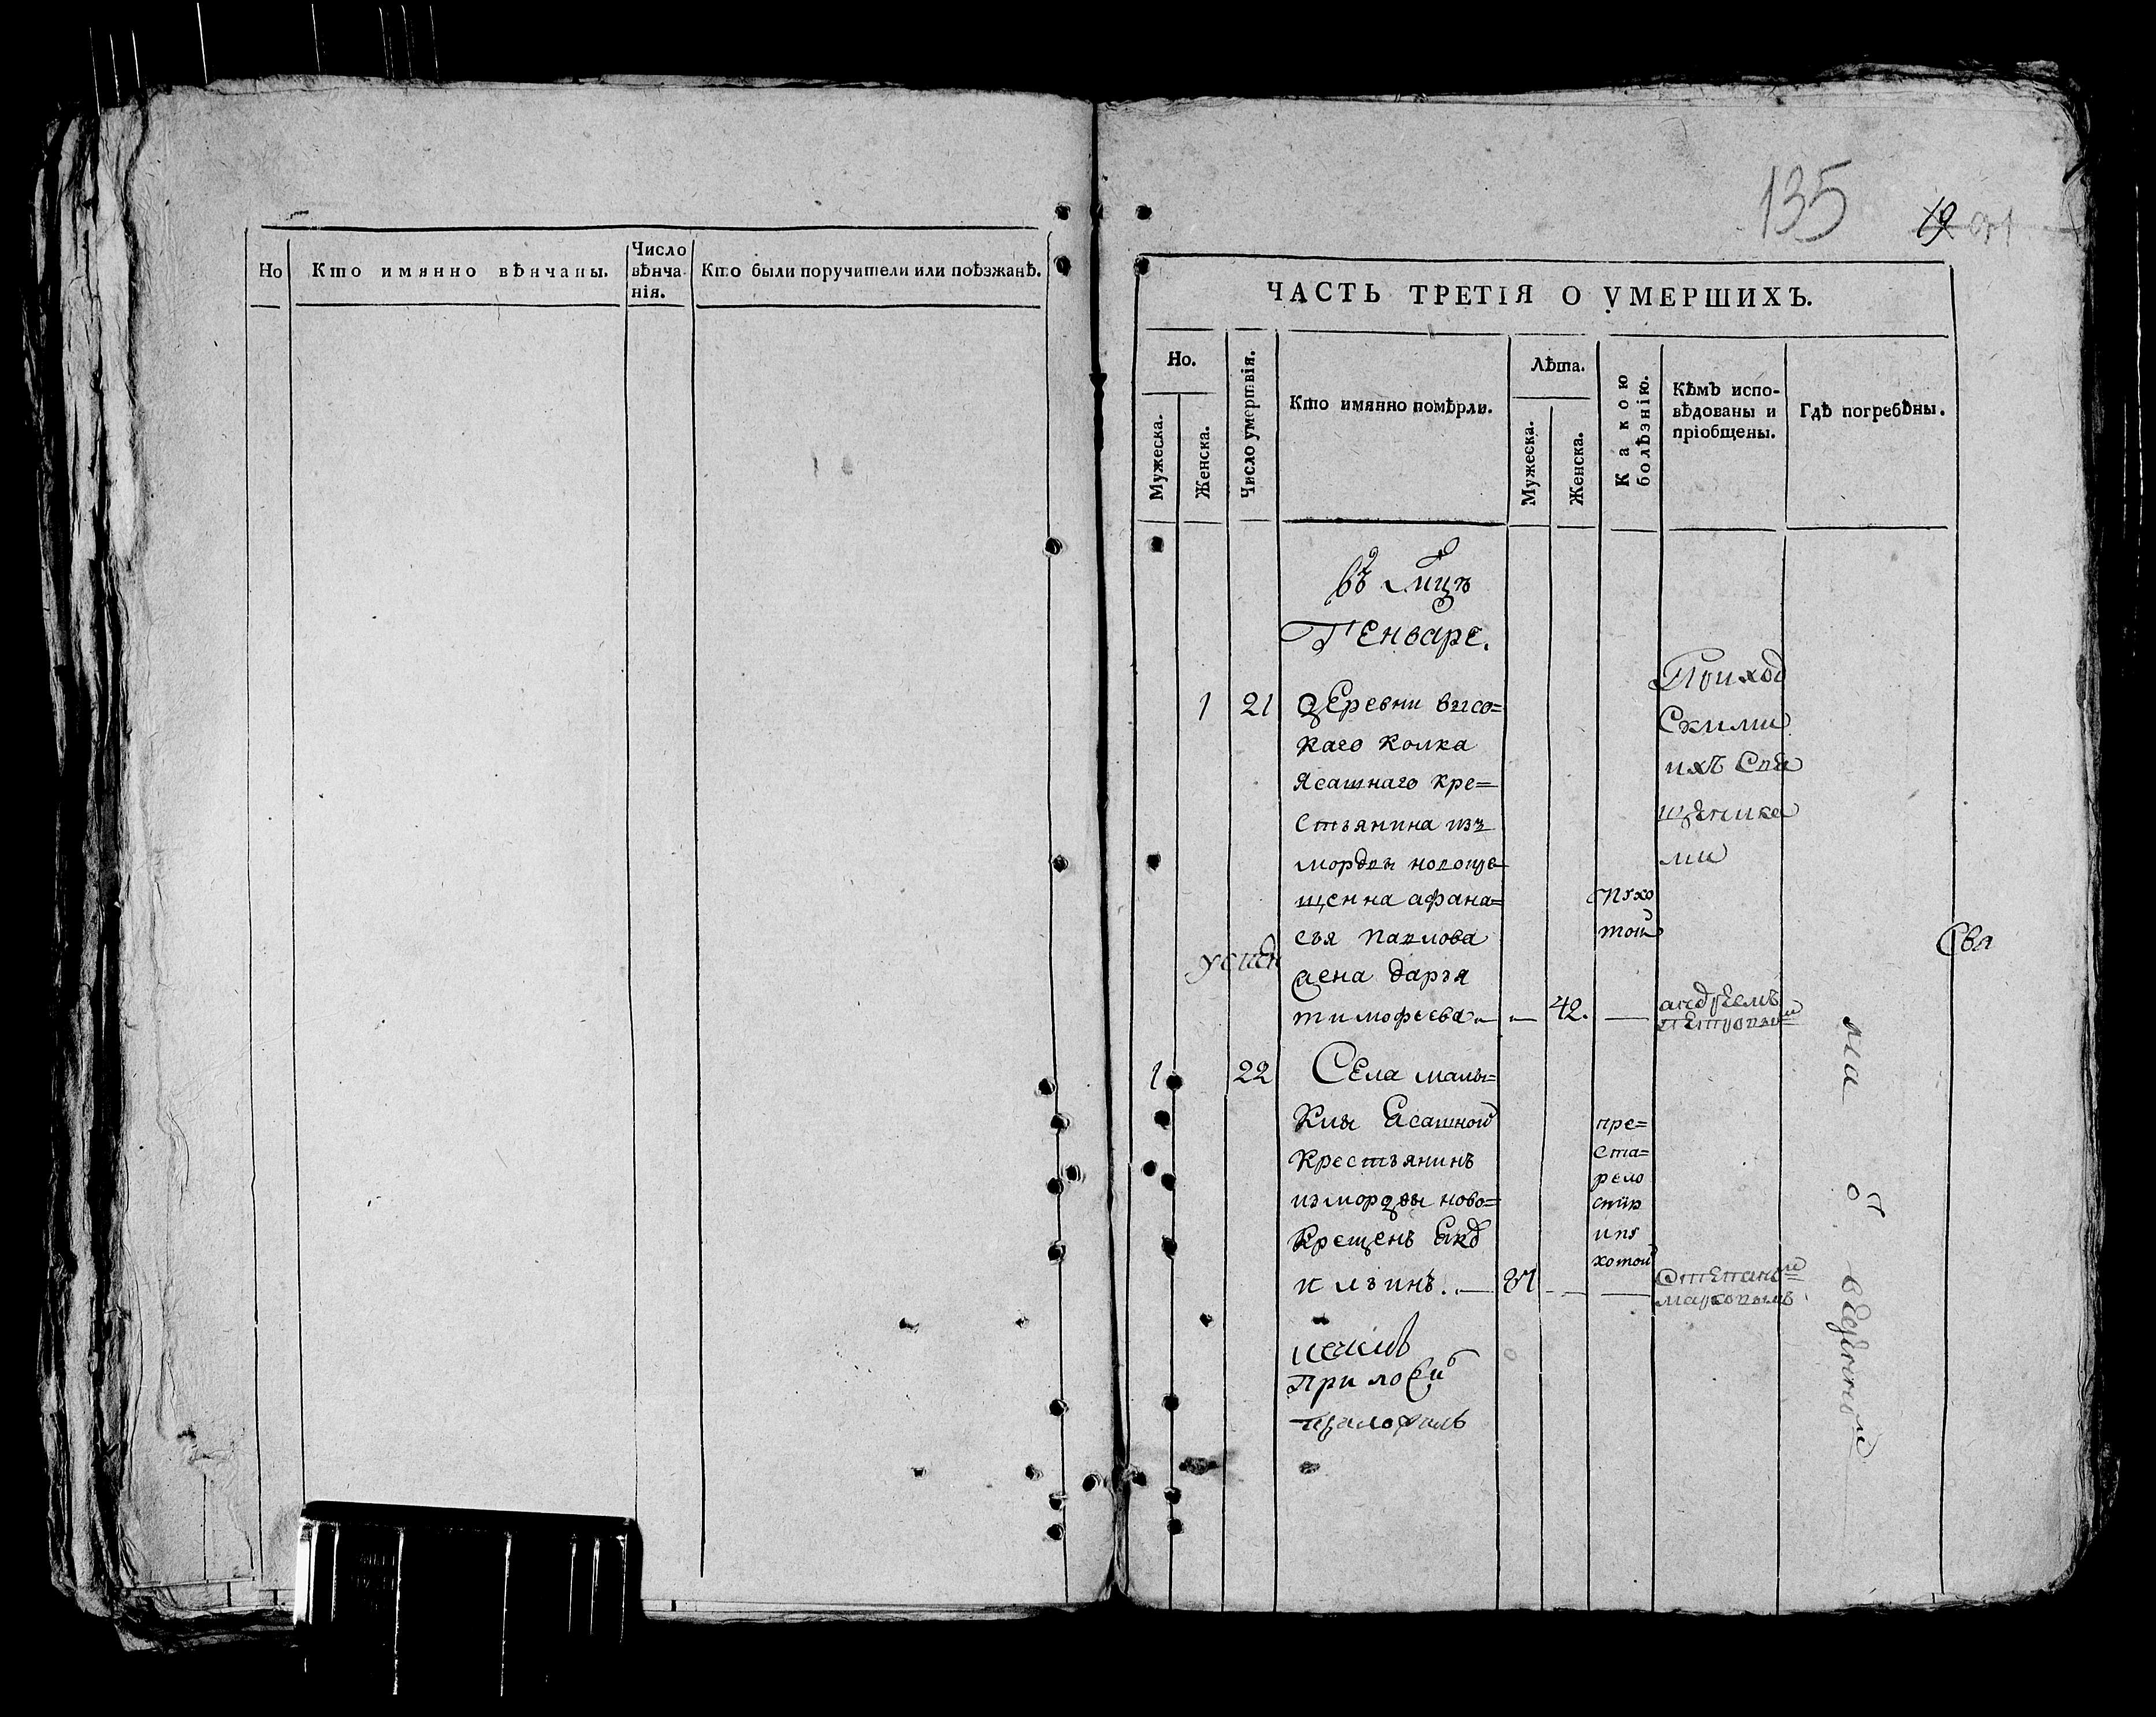 Но
Кто имянно вѣнчаны.
Число
вѣнча-
нія.
Кто были поручители или поѣзжанѣ.
135
19
ЧАСТЬ ТРЕТІЯ О УМЕРШИХЪ.
Но.
Мужеска.
Женска.
Число умертвія.
Кто имянно помѣрли.
Лѣта.
Мужеска.
Женска.
Какою
болѣзнію.
Кѣмъ испо-
вѣдованы и
пріобщены.
Гдѣ погребѣны.
въ мцѣ
Генваре.
1 21 деревни высо=
каго колка
Ясашнаго кре=
стьянина изъ
мордвы
щенна афана=
сья павлова
жена дарья
тимофеева 42.
пѣхо
той
Приход
Скими
ихъ Свя
щенника
ми
андреемъ
петровым
1 22 Села малы=
Клы Ясашной
крестьянинъ
из мордвы ново=
крещенъ
ильинъ.
пре=
ста=
рело
стію
ипѣ
хотой
Степаным
марковымъ
при
на
отведенном
Свя